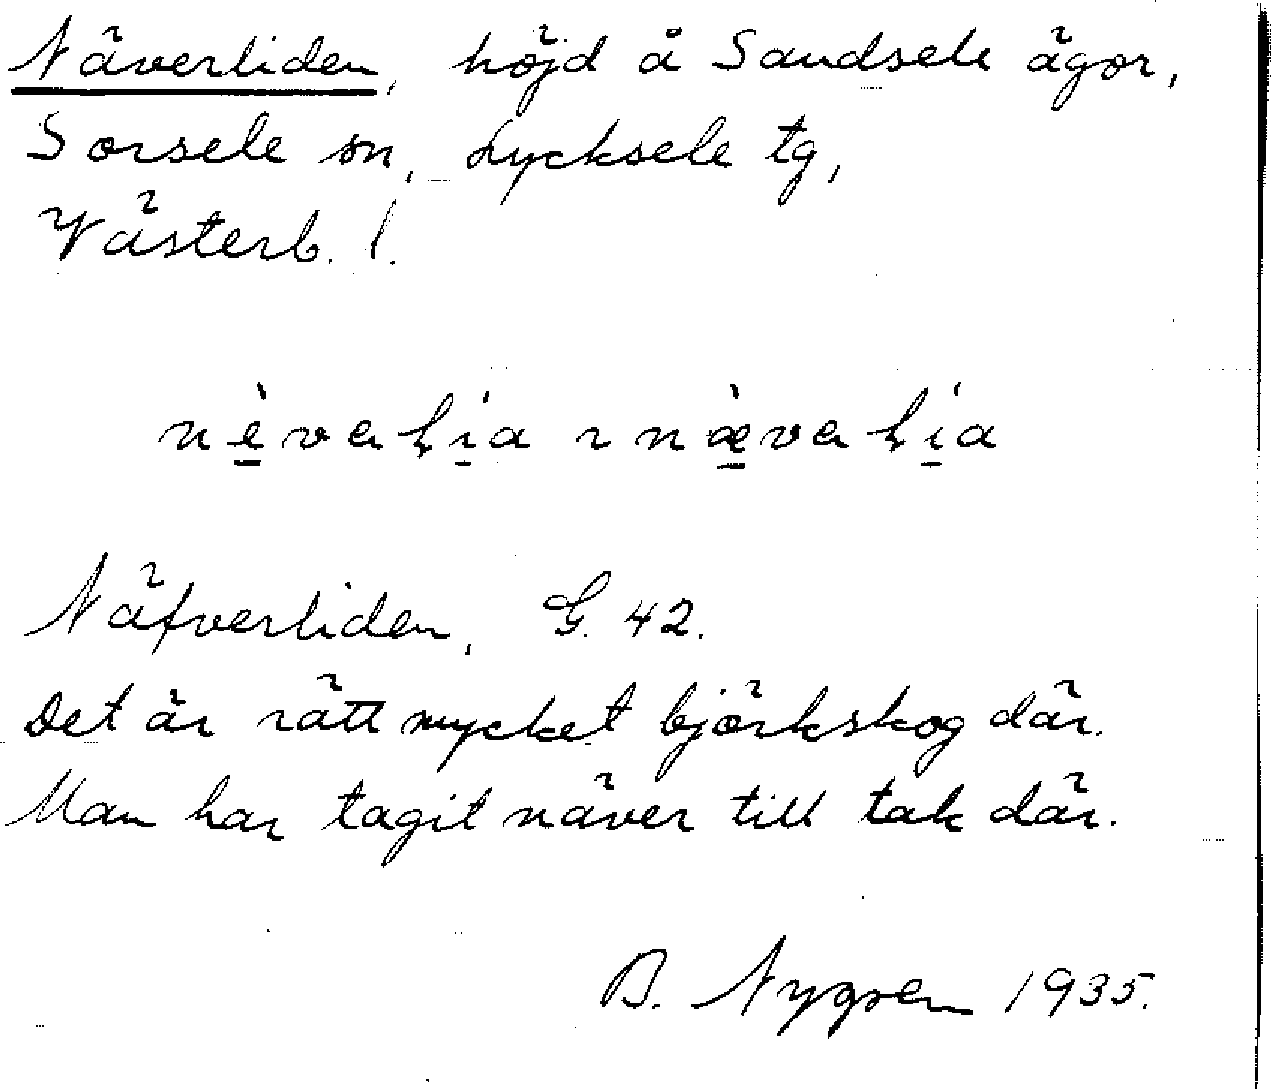 Näverliden, höjd å Sandsele ägor,
Sorsele sn, Lycksele tg,
Västerb. l.
Näfverliden, G. 42.
Det är rätt mycket björkskog där.
Man har tagit näver till tak där.
B. Nygren 1935.